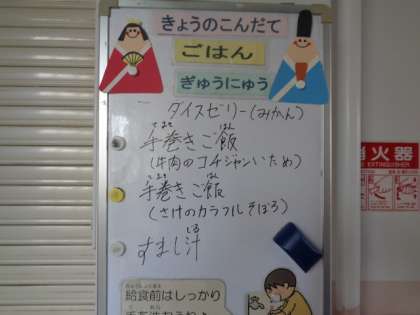 きょうのこんだて
ごはん
ぎゅうにゅう
ダイスゼリー(みかん)
手巻きご飯
(牛肉のコチジャンいため)
手巻きご飯
(さけのカラフルそぼろ)
すまし汁
消火器
EXTINGUISHER
給食前はしっかり